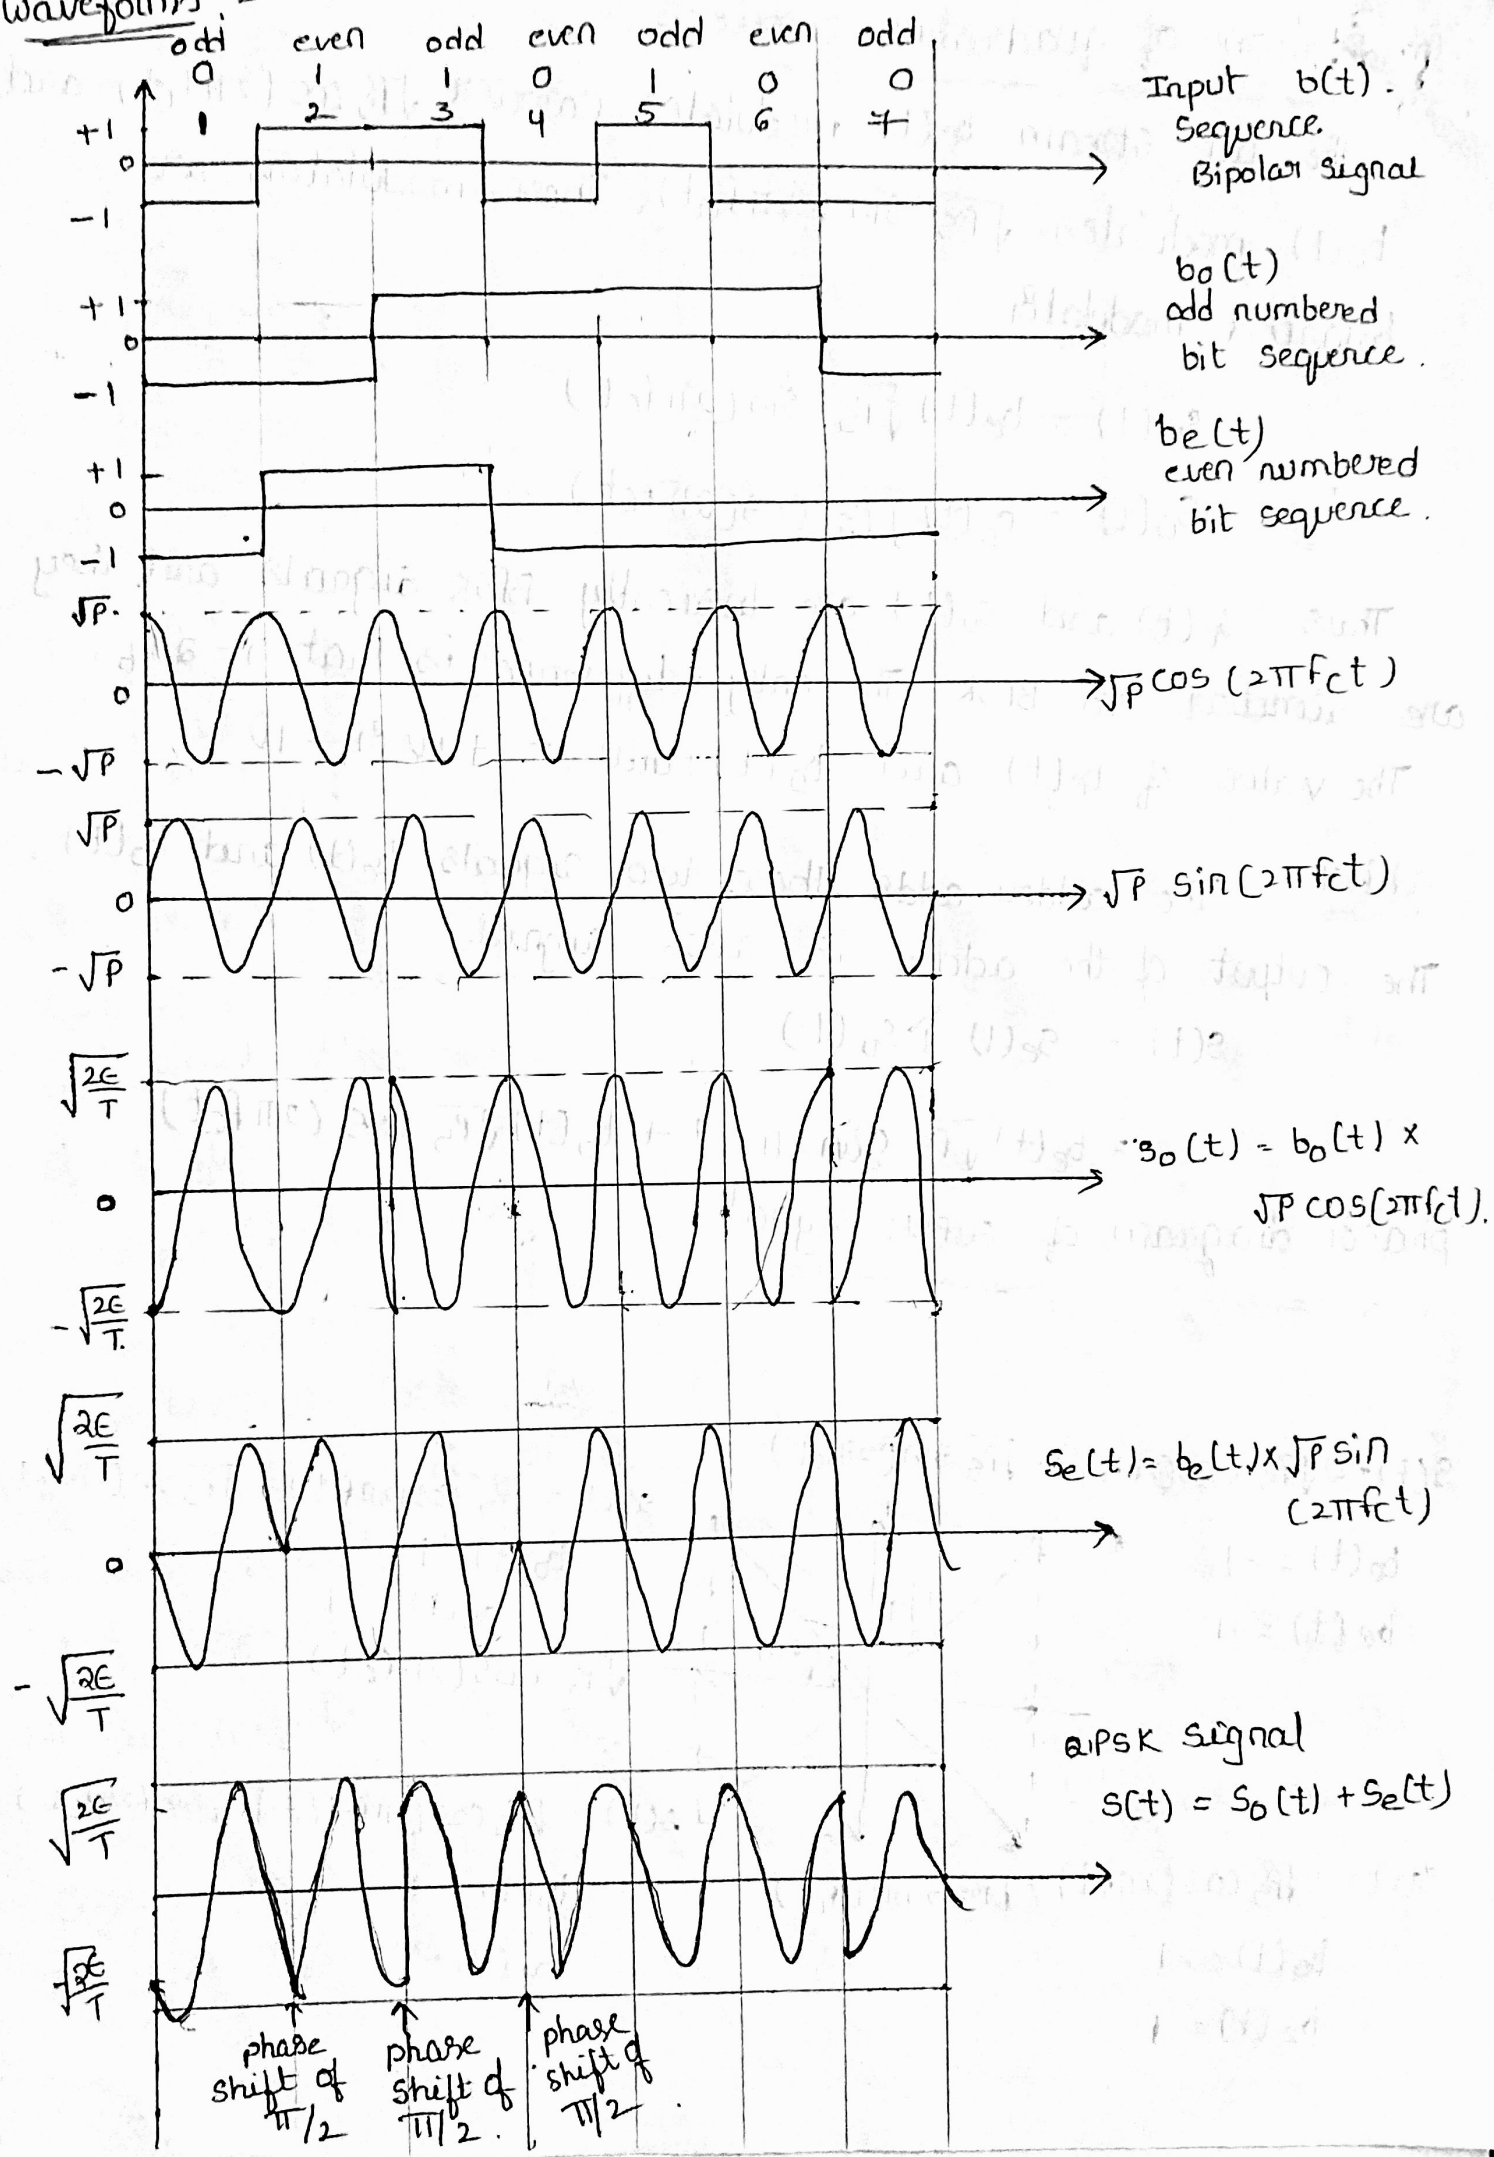 Waveforms :-
odd even odd even odd even odd
0 1 1 0 1 0 0
1 2 3 4 5 6 7
+1
0
-1
Input b(t).
Sequence.
Bipolar signal
+1
0
-1
bo(t)
odd numbered
bit sequence.
+1
0
-1
be(t)
even numbered
bit sequence.
√P
0
-√P
√P cos (2πfct)
√P
0
-√P
√P sin(2πfct)
√2E/T
0
-√2E/T
so(t) = bo(t) ×
√P cos(2πfct).
√2E/T
0
-√2E/T
Se(t) = be(t) × √P sin
(2πfct)
QPSK signal
S(t) = So(t) + Se(t)
√2E/T
-√2E/T
phase
shift of
π/2
phase
shift of
π/2.
phase
shift of
π/2.